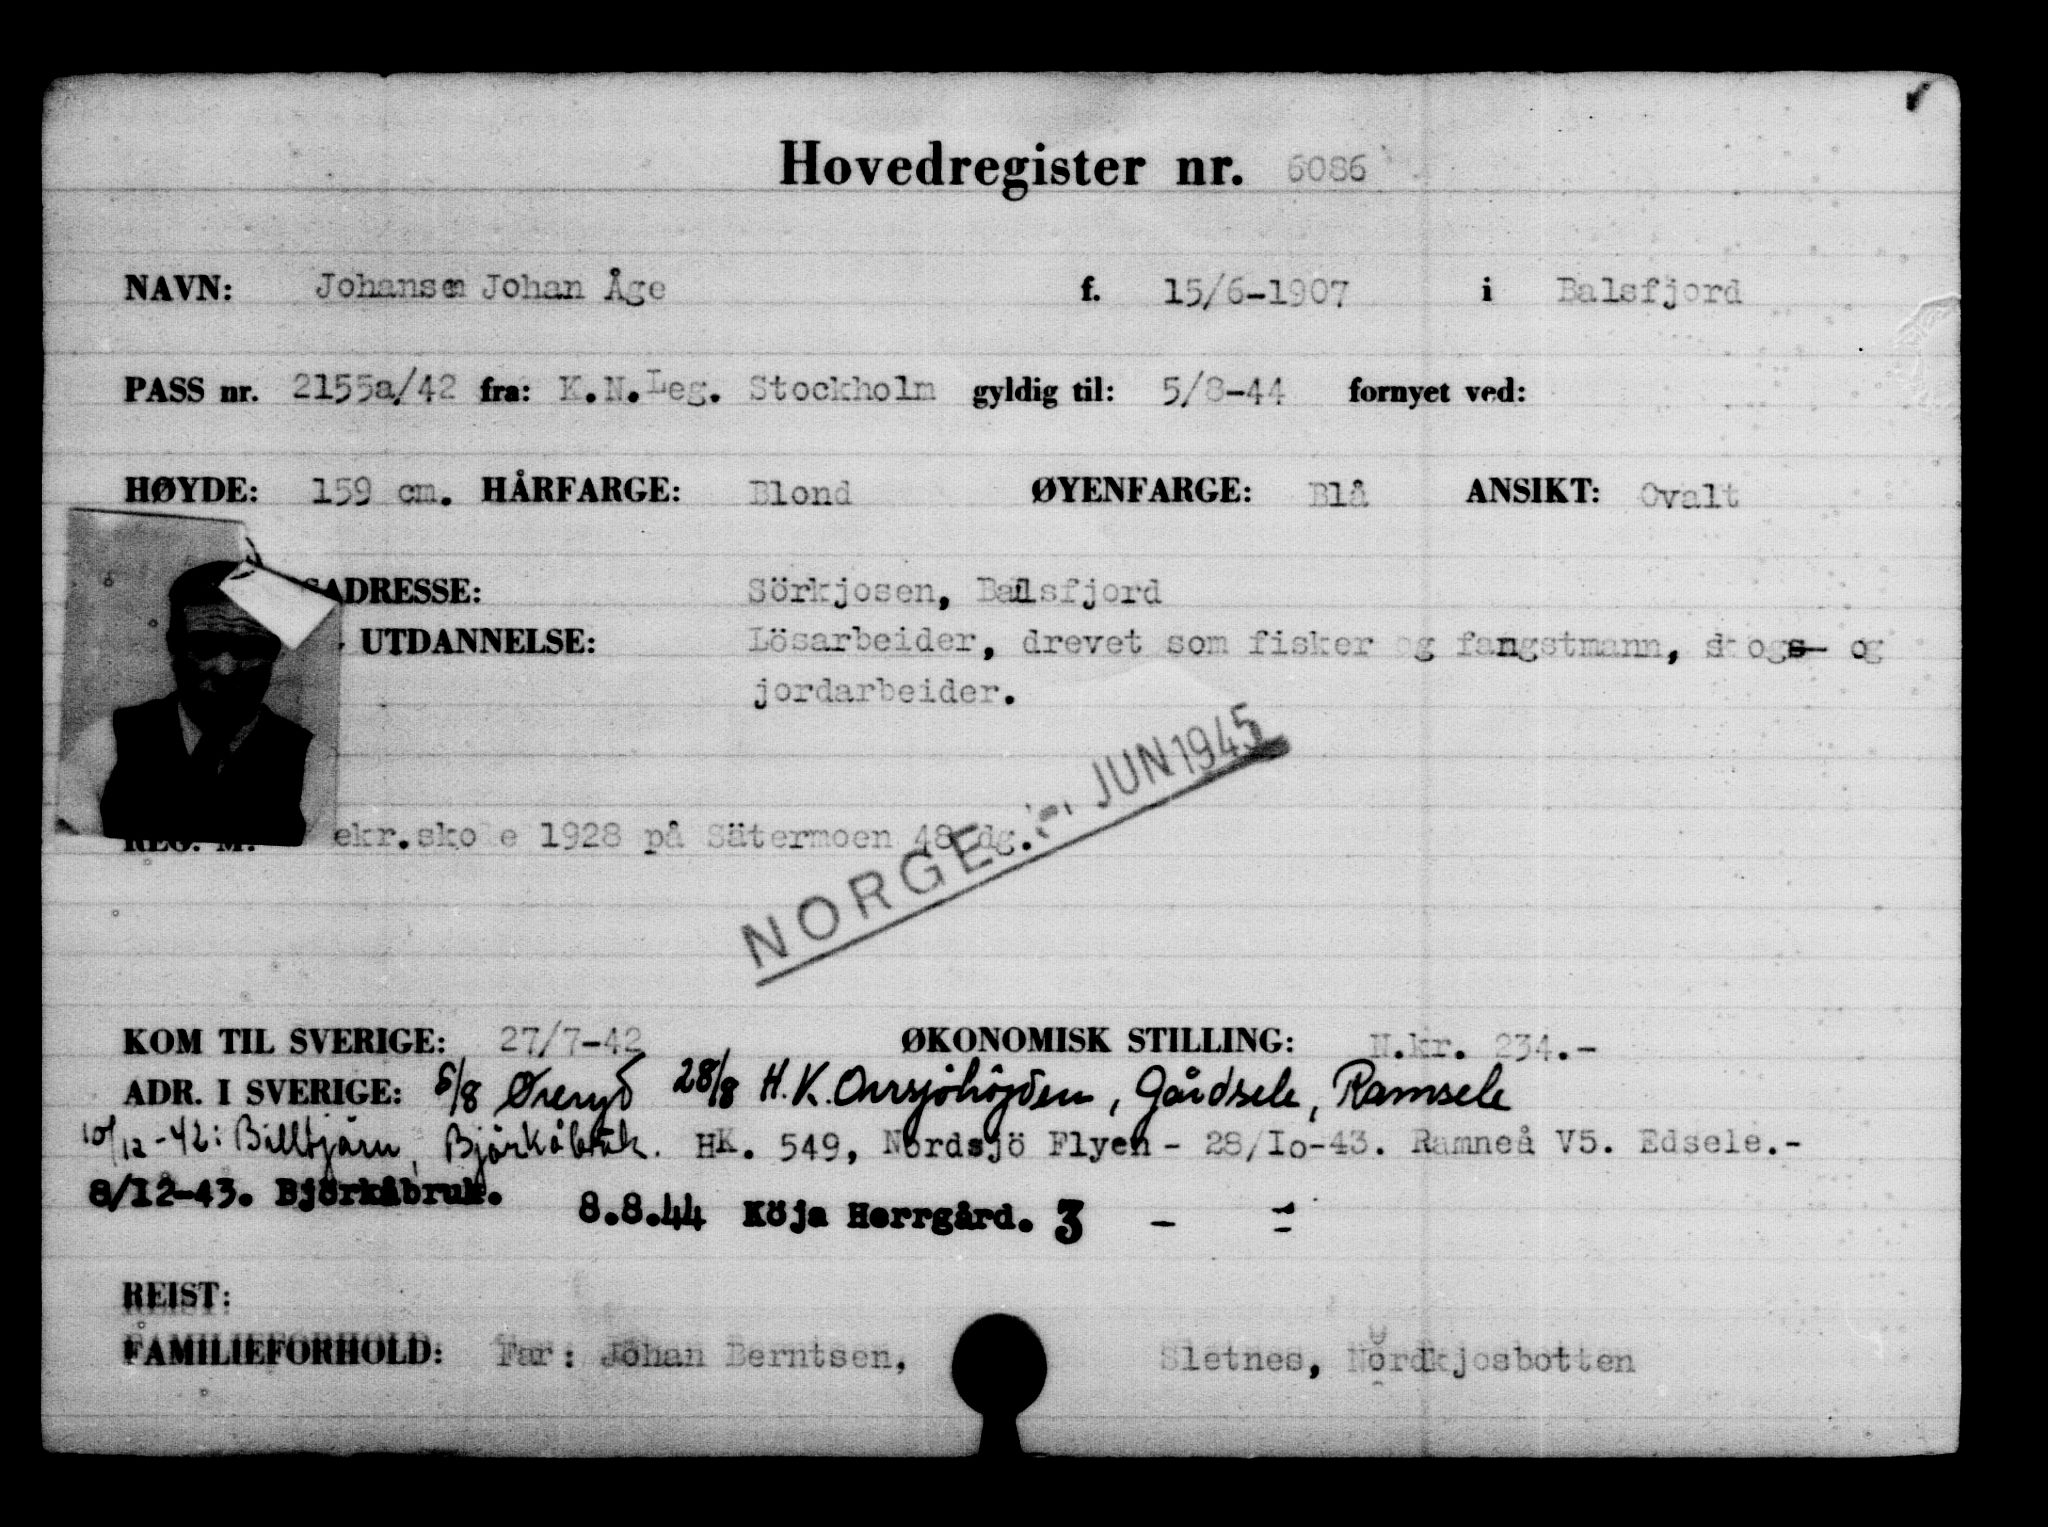 Hovedregister nr. 6086
NAVN: Johansen Johan Åge f. 15/6-1907 i Balsfjord
PASS nr. 2155a/42 fra: K.N.Leg. Stockholm gyldig til: 5/8-44 fornyet ved:
HØYDE: 159 cm. HÅRFARGE: Blond ØYENFARGE: Blå ANSIKT: Ovalt
SADRESSE: Sörkjosen, Balsfjord
UTDANNELSE: Lösarbeider, drevet som fisker og fangstmann, skogs- og
jordarbeider.
NORGE JUN 1945
REG. M. ekr.skole 1928 på Sätermoen 48 dg.
KOM TIL SVERIGE: 27/7-42 ØKONOMISK STILLING: N.kr. 234.-
ADR. I SVERIGE: 5/8 Øreryd 28/8 H.K. Orrsjöhöjden, Gårdsele, Ramsele
10/12-42: Billtjärn, Björkåbruk. HK. 549, Nordsjö Flyen - 28/Io-43. Ramneå V5. Edsele.-
8/I2-43. Björkåbruk. 8.8.44 Köja Herrgård. 3 - -
REIST:
FAMILIEFORHOLD: Far: Johan Berntsen, Sletnes, Nordkjosbotten